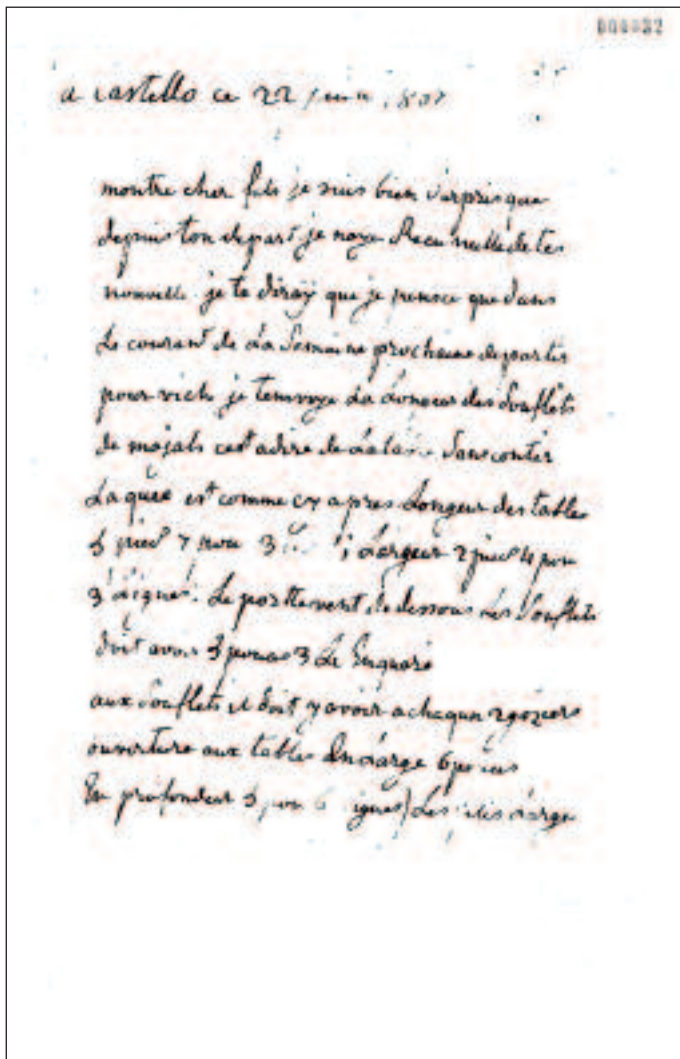 000032
a castello ce 22 juin 180
montre cher fils je suis bien surpris que
depuis ton depart je naye Recu nulle de tes
nouvelle je te diray que je pensce que dans
Le courant de La Semaine prochaine departir
pour vich je tenvoye La Longeur des Soufflets
de majals cest adire de Sans conter
La quée est comme cy apres Longeur des tables
5 pied 7 pou 3 Largeur 2 pied 4 pou
3 Lignes. Le porttevent de dessous Les Souflets
doit avoir 3 pouces 3 Li Enquaré
aux Souflets il doit y avoir a chaqun 2 goziers
ouverture aux tables En Large 6 pouces
En profondeur 5 pou 6 ignes) Les Large